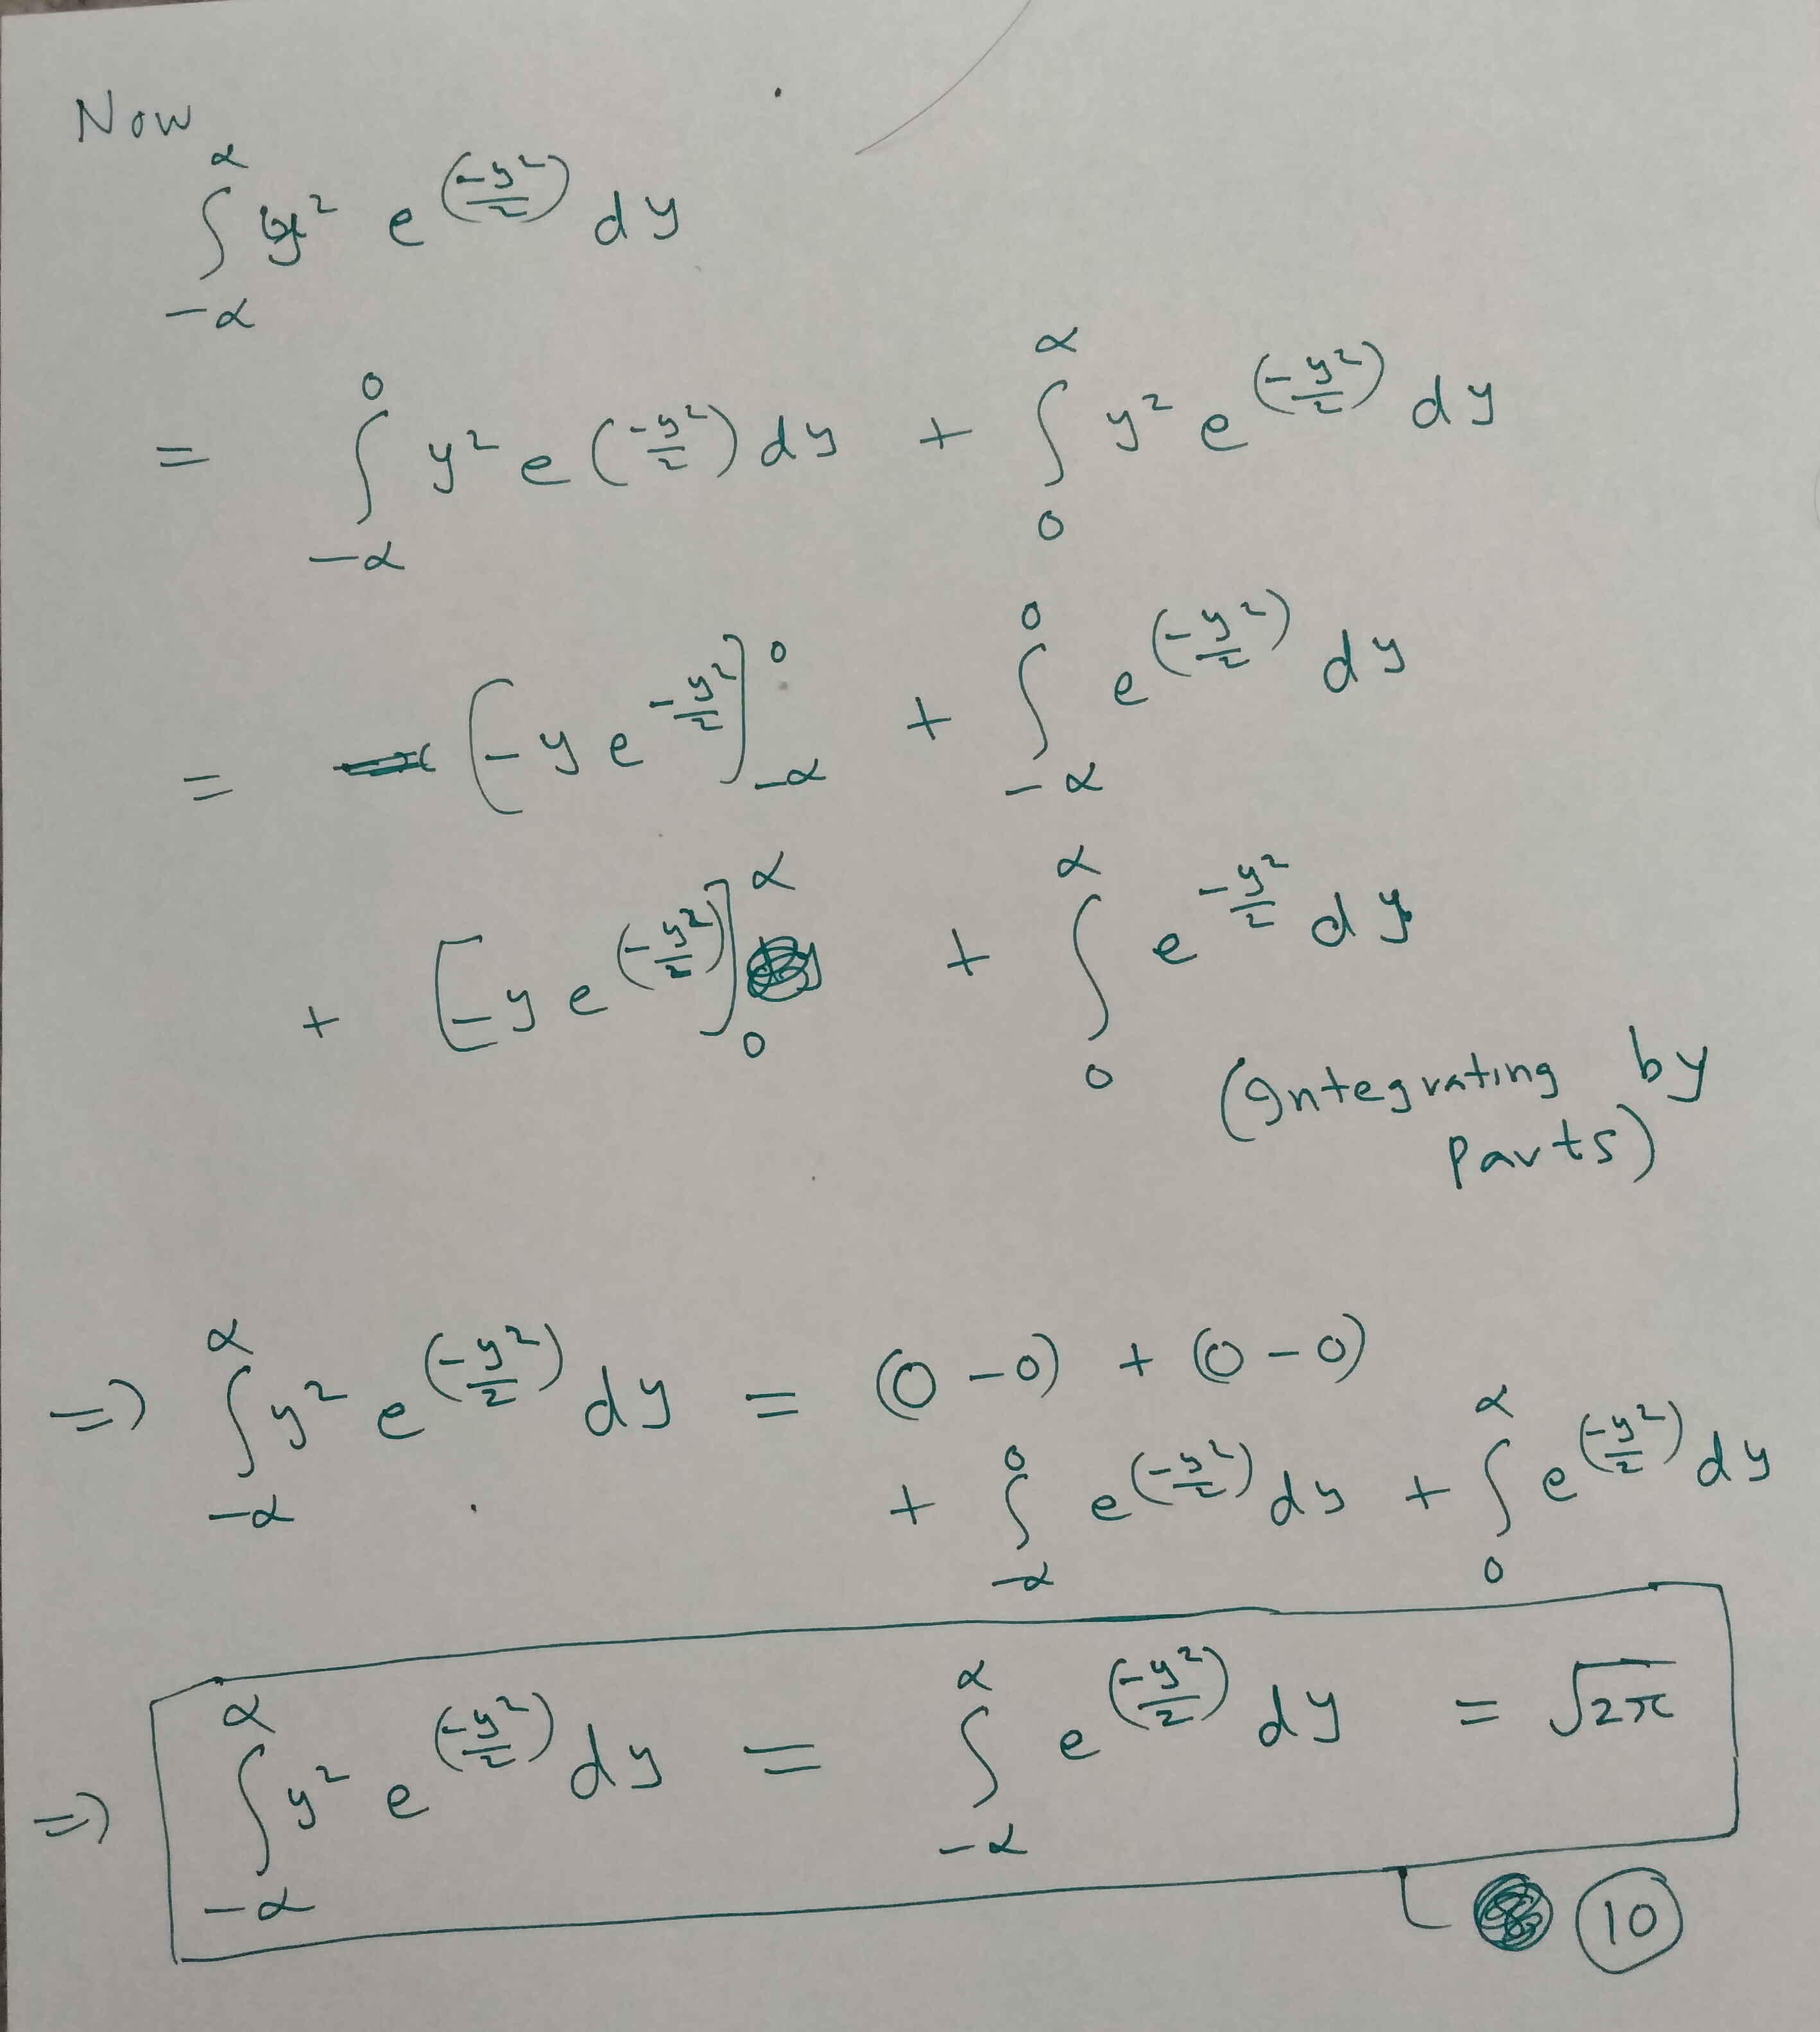 Now
∫_{-α}^{α} y² e^{(-y²/2)} dy
= ∫_{-α}^{0} y² e (-y²/2) dy + ∫_{0}^{α} y² e^{(-y²/2)} dy
= [-y e^{-y²/2}]_{-α}^{0} + ∫_{-α}^{0} e^{(-y²/2)} dy
+ [-y e^{(-y²/2)}]_{0}^{α} + ∫_{0}^{α} e^{-y²/2} dy
(Integrating by
parts)
=> ∫_{-α}^{α} y² e^{(-y²/2)} dy = (0-0) + (0-0)
+ ∫_{-α}^{0} e^{(-y²/2)} dy + ∫_{0}^{α} e^{(-y²/2)} dy
=> ∫_{-α}^{α} y² e^{(-y²/2)} dy = ∫_{-α}^{α} e^{(-y²/2)} dy = √2π
10